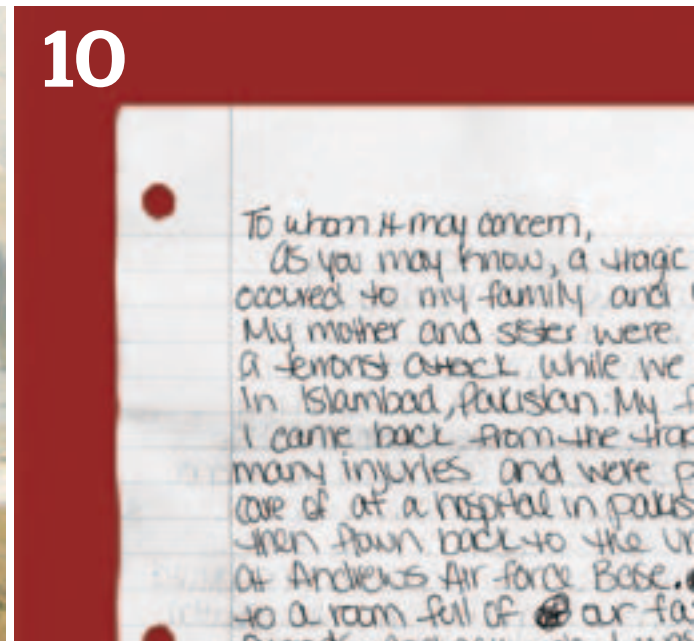 10
To whom it may concern,
As you may know, a tragic
occured to my family and
My mother and sister were
a terrorist attack while we
in Islambad, Pakistan. My
I came back from the
many injuries and were
care of at a hospital in
then flown back to the
at Andrews Air force Base.
to a room full of our